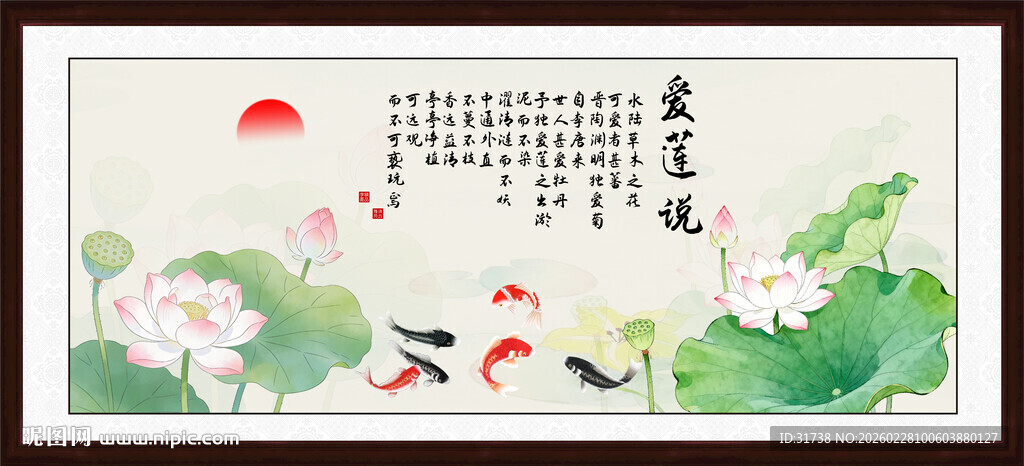 爱莲说
水陆草木之花
可爱者甚蕃
晋陶渊明独爱菊
自李唐来
世人甚爱牡丹
予独爱莲之出淤
泥而不染
濯清涟而不妖
中通外直
不蔓不枝
香远益清
亭亭净植
可远观
而不可亵玩焉
昵图网 www.nipic.com
ID:31738 NO:20260228100603880127